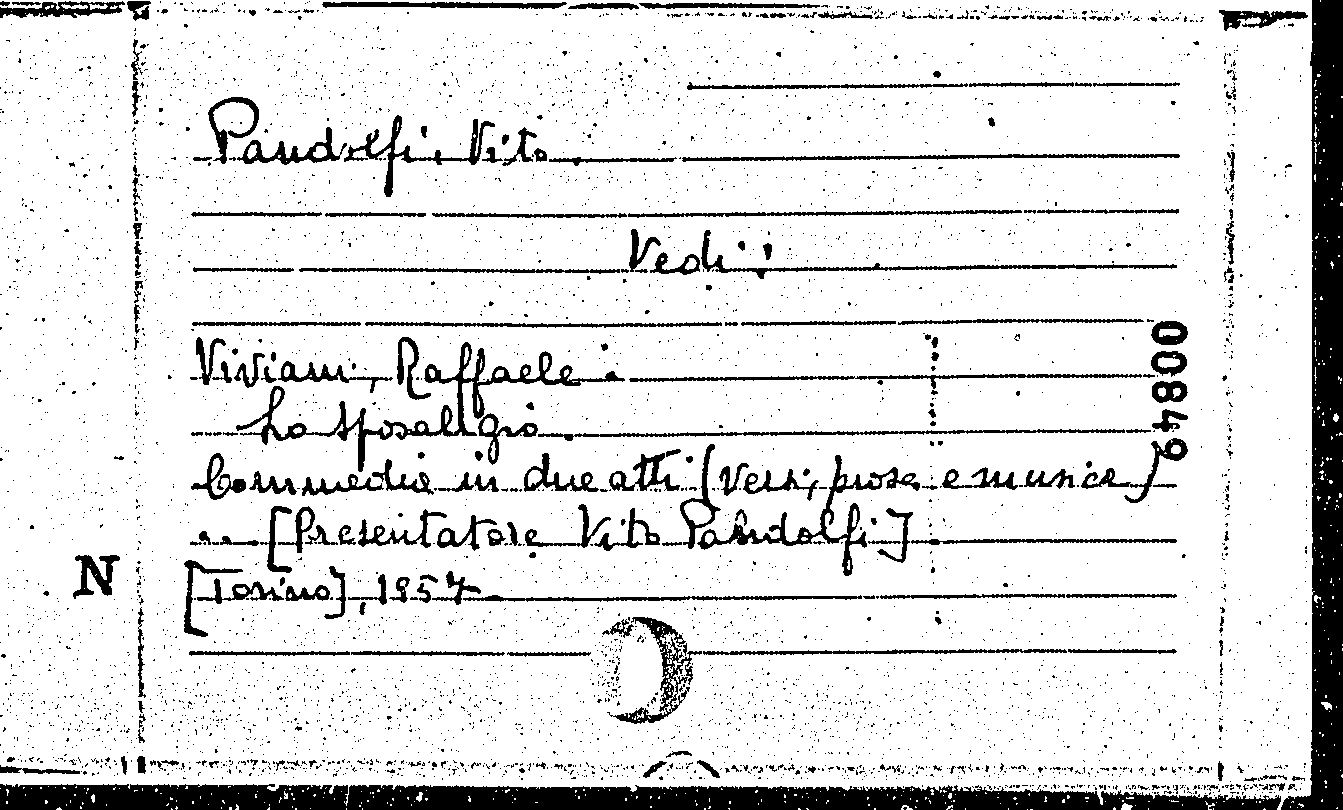 Pandolfi, Vito.
Vedi:
Viviani, Raffaele.
Lo sposalizio.
Commedia in due atti (versi, prosa e musica)
... [Presentatore Vito Pandolfi]
[Torino], 1957
N
00849